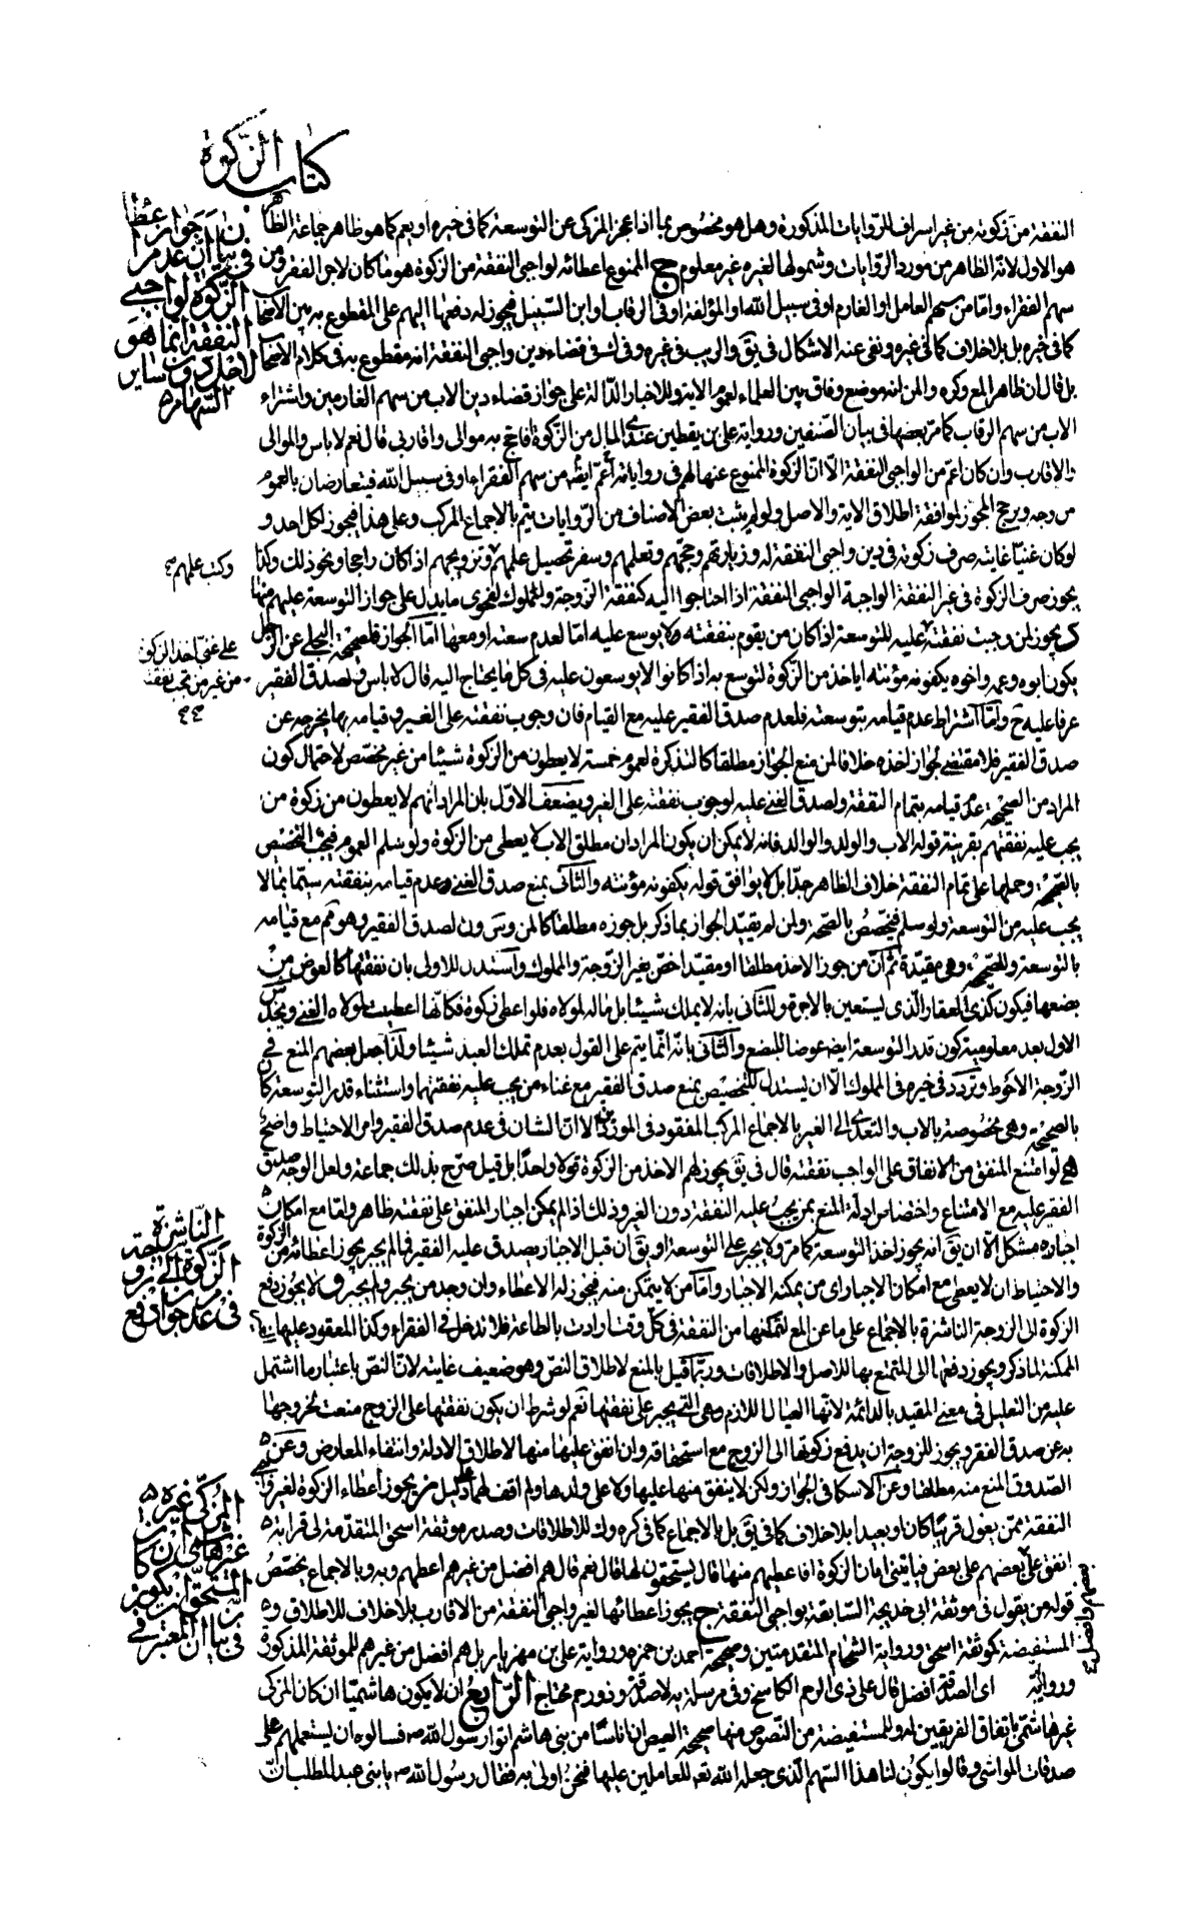 كتاب الزكوة
النفقة من زكوته من غير اسراف للروايات المذكورة وهل هو مخصوص بما اذا عجز المزكى عن التوسعة كما فى خيره او يعم كما هو ظاهر جماعة الظاهر
هو الاول لانه الظاهر من مورد الروايات وشمولها لغيره غير معلوم ج الممنوع اعطائه لواجبى النفقة من الزكوة هو ما كان لاجل الفقر ومن
سهم الفقراء واما من سهم العامل او الغارم او فى سبيل الله او المؤلفة او فى الرقاب او ابن السبيل فيجوز له دفعها اليهم على المقطوع به بين الاصحاب
كما فى خيره بل بلا خلاف كما فى غيره ونفى عنه الاشكال فى يق والريب فى غيره وفى ك فى قضاء دين واجبى النفقة انه مقطوع به فى كلام الاصحاب
بل قال ان ظاهر المع وكره والمن انه موضع وفاق بين العلماء لعموم الاية وللاخبار الدالة على جواز قضاء دين الاب من سهم الغارمين واشتراء
الاب من سهم الرقاب كما مر بعضها فى بيان الصنفين ورواية على بن يقطين عندى المال من الزكوة افاحج به موالى واقاربى قال نعم لا باس والموالى
والاقارب وان كان اعم من الواجبى النفقة الا ان الزكوة الممنوع عنها لهم فى رواياته أعم ايضا من سهم الفقراء وفى سبيل الله فيتعارضان بالعموم
من وجه ويرجح المجوز لموافقة اطلاق الاية والاصل ولو لم يثبت بعض الاصناف من الروايات يتم بالاجماع المركب وعلى هذا فيجوز لكل احد و
لو كان غنيا غايته صرف زكوته فى دين واجبى النفقة له وزيارتهم وحجهم وتعلمهم وسفر تحصيل علمهم وتزويجهم اذا كان راجحا ونحو ذلك وكذا
يجوز صرف الزكوة فى غير النفقة الواجبة الواجبى النفقة اذا احتاجوا اليه كنفقة الزوجة والمملوك لفحوى ما يدل على جواز التوسعة عليهم منها
يجوز لمن وجبت نفقته عليه للتوسعة اذا كان من يقوم بنفقته ولا يوسع عليه اما لعدم سعته او معها اما الجواز فلصحيحة البجلى عن الرجل
يكون ابوه وعمه واخوه يكفونه مؤنته اياخذ من الزكوة لتوسع به اذا كانوا لا يوسعون عليه فى كل ما يحتاج اليه قال لا باس ولصدق الفقير
عرفا عليه ح واما اشتراط عدم قيامه بتوسعته فلعدم صدق الفقير عليه مع القيام فان وجوب نفقته على الغير وقيامه بها يخرجه عن
صدق الفقير فلا مقتضى لجواز اخذه خلافا لمن منع الجواز مطلقا كالتذكرة لعموم خمسة لا يعطون من الزكوة شيئا من غير مخصص لاحتمال كون
المراد من الصحيحة عدم قيامه بتمام النفقة ولصدق الغنى عليه لوجوب نفقته على الغير ويضعف الاول بان المراد انهم لا يعطون من زكوة من
يجب عليه نفقتهم بقرينة قوله الاب والولد والوالد فانه لا يمكن ان يكون المراد ان مطلق الاب لا يعطى من الزكوة ولو سلم العموم فيجب التخصيص
بالصحيحة وحملها على تمام النفقة خلاف الظاهر جدا بل لا يوافق قوله يكفونه مؤنته والثانى بمنع صدق الغنى وعدم قيامه بنفقته سيما بما لا
يجب عليه من التوسعة ولو سلم فيخصص بالصحيحة ولمن لم يقيد الجواز بما ذكر بل جوزه مطلقا كالمن وس ون لصدق الفقير وهو مم مع قيامه
بالتوسعة وللصحيحة وهى مقيدة ثم ان من جوز الاخذ مطلقا او مقيدا خص بغير الزوجة والمملوك واستدل للاولى بان نفقتها كالعوض من
بضعها فيكون كذى العقار والذى يستعين بالاجرة وللثانى بانه لا يملك شيئا بل ماله لمولاه فلو اعطى زكوة فكانها اعطيت لمولاه الغنى ويخدش
الاول بعد معلومية كون قدر التوسعة ايض عوضا للبضع والثانى بانه انما يتم على القول بعدم تملك العبد شيئا ولذا جعل بعضهم المنع فى
الزوجة الاحوط وتردد فى خيره فى المملوك الا ان يستدل للتخصيص بمنع صدق الفقير مع غناء من يجب عليه نفقتهما واستثناء قدر التوسعة كان
بالصحيحة وهى مخصوصة بالاب والتعدى الى الغير بالاجماع المركب المفقود فى الموردين الا ان الشان فى عدم صدق الفقير وامر الاحتياط واضح
لو امتنع المنفق من الانفاق على الواجب نفقته قال فى يق يجوز لهم الاخذ من الزكوة قولا واحدا بل قيل صرح بذلك جماعة ولعل الوجه صدق
الفقير عليه مع الامتناع واختصاص ادلة المنع بمن يجب عليه النفقة دون الغير وذلك اذا لم يمكن اجبار المنفق على نفقته ظاهر واما مع امكان
اجباره مشكل الا ان يق انه يجوز اخذ التوسعة كما مر ولا يجبر على التوسعة او يق ان قبل الاجبار يصدق عليه الفقير فما لم يجبر يجوز اعطائه من الزكوة
والاحتياط ان لا يعطى مع امكان الاجبار اى من يمكنه الاجبار واما من لا يتمكن منه فيجوز له الاعطاء وان وجد من يجبر ولم يجبر ولا يجوز دفع
الزكوة الى الزوجة الناشزة بالاجماع على ما عن المع لتمكنها من النفقة فى كل وقت ارادت بالطاعة فلا تدخل فى الفقراء وكذا المعقود عليها
الممكنة لما ذكر ويجوز دفعها الى المتمتع بها للاصل والاطلاقات وربما قيل بالمنع لاطلاق النص وهو ضعيف غايته لان النص باعتبار ما اشتمل
عليه من التعليل فى معنى المقيد بالدائمة لانها العيال اللازم وهى التى يجبر على نفقتها نعم لو شرط ان يكون نفقتها على الزوج منعت لخروجها
به عن صدق الفقر ويجوز للزوجة ان يدفع زكوتها الى الزوج مع استحقاقه وان انفق عليها منها لاطلاق الادلة وانتفاء المعارض وعن
الصدوق المنع منه مطلقا وعن الاسكافى الجواز ولكن لا ينفق منها عليها ولا على ولدها ولم اقف لهما على دليل يجوز اعطاء الزكوة لغير واجبى
النفقة ممن يعول قريبا كان او بعيدا بلا خلاف كما فى يق بل بالاجماع كما فى كره وك للاطلاقات وصدر موثقة اسحق المتقدمة لى قرابة
انفق على بعضهم على بعض فياتينى ابان الزكوة افاعطيهم منها قال يستحقون لها قال نعم قال هم افضل من غيرهم اعطهم وبه وبالاجماع يختص
قوله من يقول فى موثقة ابى خديجة السابقة بواجبى النفقة ج يجوز اعطائها لغير واجبى النفقة من الاقارب بلا خلاف للاطلاق و
المستفيضة كموثقة اسحق ورواية الشحام المتقدمتين وصحيحة احمد بن حمزة ورواية على بن مهزيار بل هم افضل من غيرهم للموثقة المذكورة
ورواية اى الصدقة افضل قال على ذى الرحم الكاشح وفى مرسلة يه لا صدقة وذو رحم محتاج الرابع ان لا يكون هاشميا ان كان المزكى
غير هاشمى باتفاق الفريقين له وللمستفيضة من النصوص منها صحيحة العيص ان اناسا من بنى هاشم اتوا رسول الله ص فسالوه ان يستعملهم على
صدقات المواشى وقالوا يكون لنا هذا السهم الذى جعله الله تعه للعاملين عليها فنحن اولى به فقال رسول الله ص يا بنى عبد المطلب ان
فى بيان ان عدم جواز اعطاء
الزكوة لواجبى
النفقة انما هو
لاجل الفقر دون ساير
السهام
وكتب علمهم
على غنى اخذ الزكوة
من غير من تجب نفقته
الناشزة
الزكوة الى الزوجة
فى عدم جواز دفع
المزكى غيره
غير هاشمى ان كان
المستحق ان لا يكون
فى بيان ان المعتبر فى
بعضهم وافضل